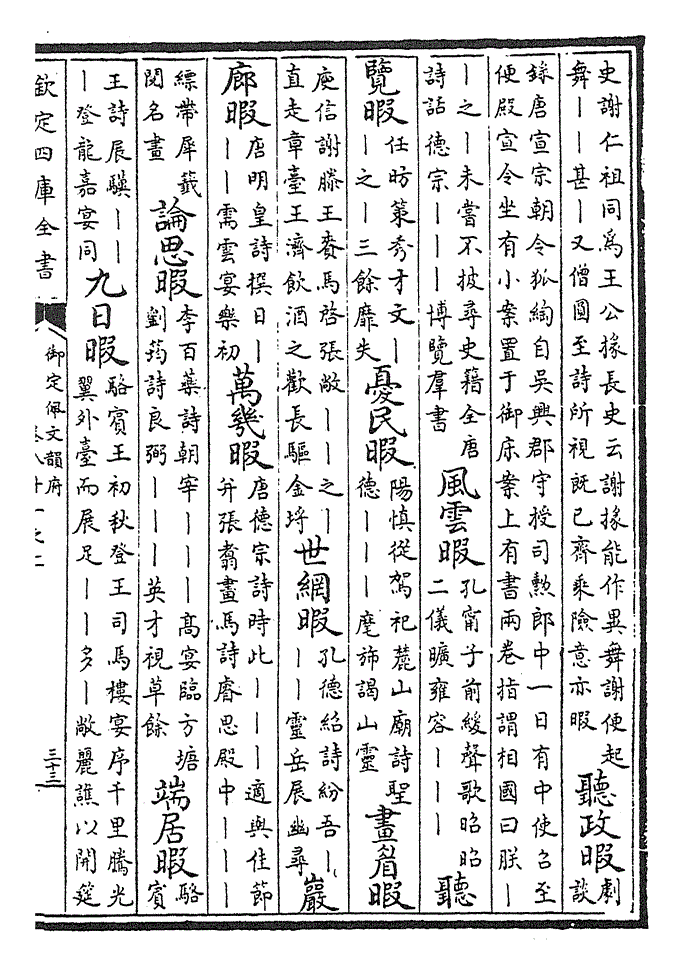 史謝仁祖同爲王公掾長史云謝掾能作異舞謝便起
舞丨丨甚丨又僧圓至詩所視既已齊乘險意亦暇
聽政暇
劇
談
錄唐宣宗朝令狐綯自吳興郡守授司勲郎中一日有中使召至
便殿宣令坐有小案置于御床案上有書兩卷指謂相國曰朕丨
丨之丨未嘗不披尋史籍全唐
詩話德宗丨丨丨丨博覽羣書
風雲暇
孔甯子前緩聲歌昭昭
二儀曠雍容丨丨丨
聽
覽暇
任昉策秀才文丨
丨之丨三餘靡失
憂民暇
陽慎從駕祀麓山廟詩聖
德丨丨丨麾斾謁山靈
畫眉暇
庾信謝滕王賚馬啓張敞丨丨之丨
直走章臺王濟飲酒之歡長驅金埒
世網暇
孔德紹詩紛吾丨
丨丨靈岳展幽尋
巖
廊暇
唐明皇詩撰日丨
丨丨需雲宴樂初
萬幾暇
唐德宗詩時此丨丨丨適與佳節
并張翥畫馬詩睿思殿中丨丨丨
縹帶犀籤
閱名畫
論思暇
李百藥詩朝宰丨丨丨高宴臨方塘
劉筠詩良弼丨丨丨英才視草餘
端居暇
駱
賓
王詩展驥丨丨
丨登龍嘉宴同
九日暇
駱賓王初秋登王司馬樓宴序千里騰光
翼外臺而展足丨丨多丨敞麗譙以開筵
欽定四庫全書
御定佩文韻府
三十三